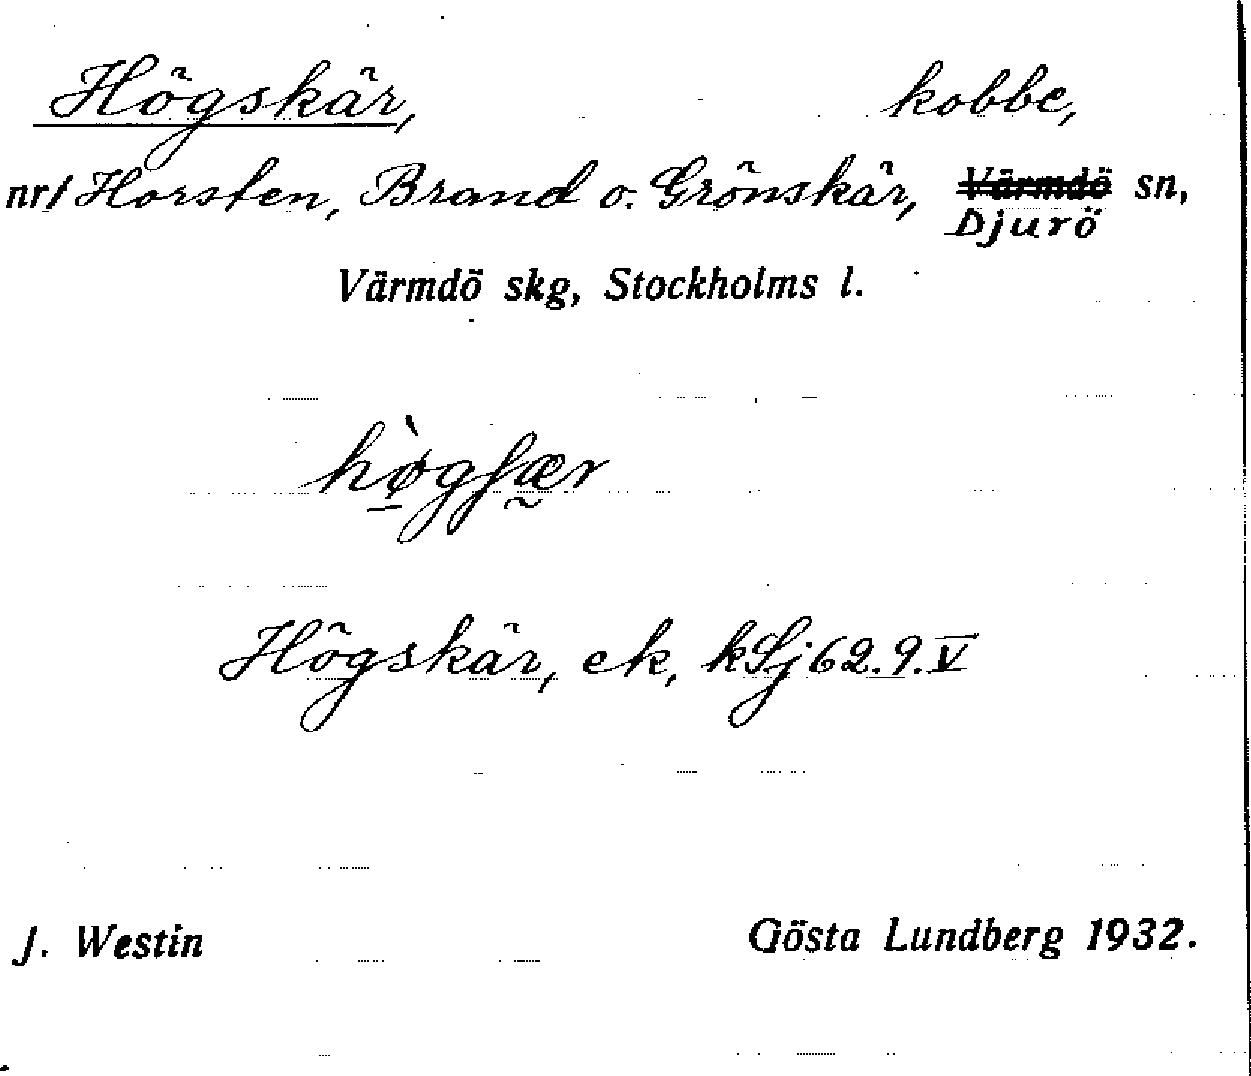 Högskär, kobbe,
nr1 Horsten, Brand o. Grönskär, Värmdö sn,
Djurö
Värmdö skg, Stockholms l.
hø̀gʃær
Högskär, ek, kSj 62.9.V
J. Westin Gösta Lundberg 1932.